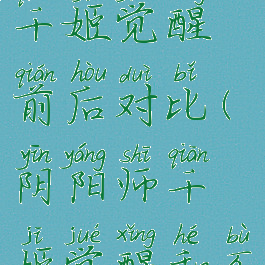 千姬觉醒
qián hòu duì bǐ
前后对比(
yīn yáng shī qiān
阴阳师千
jī jué xǐng hé bù
姬觉醒和不